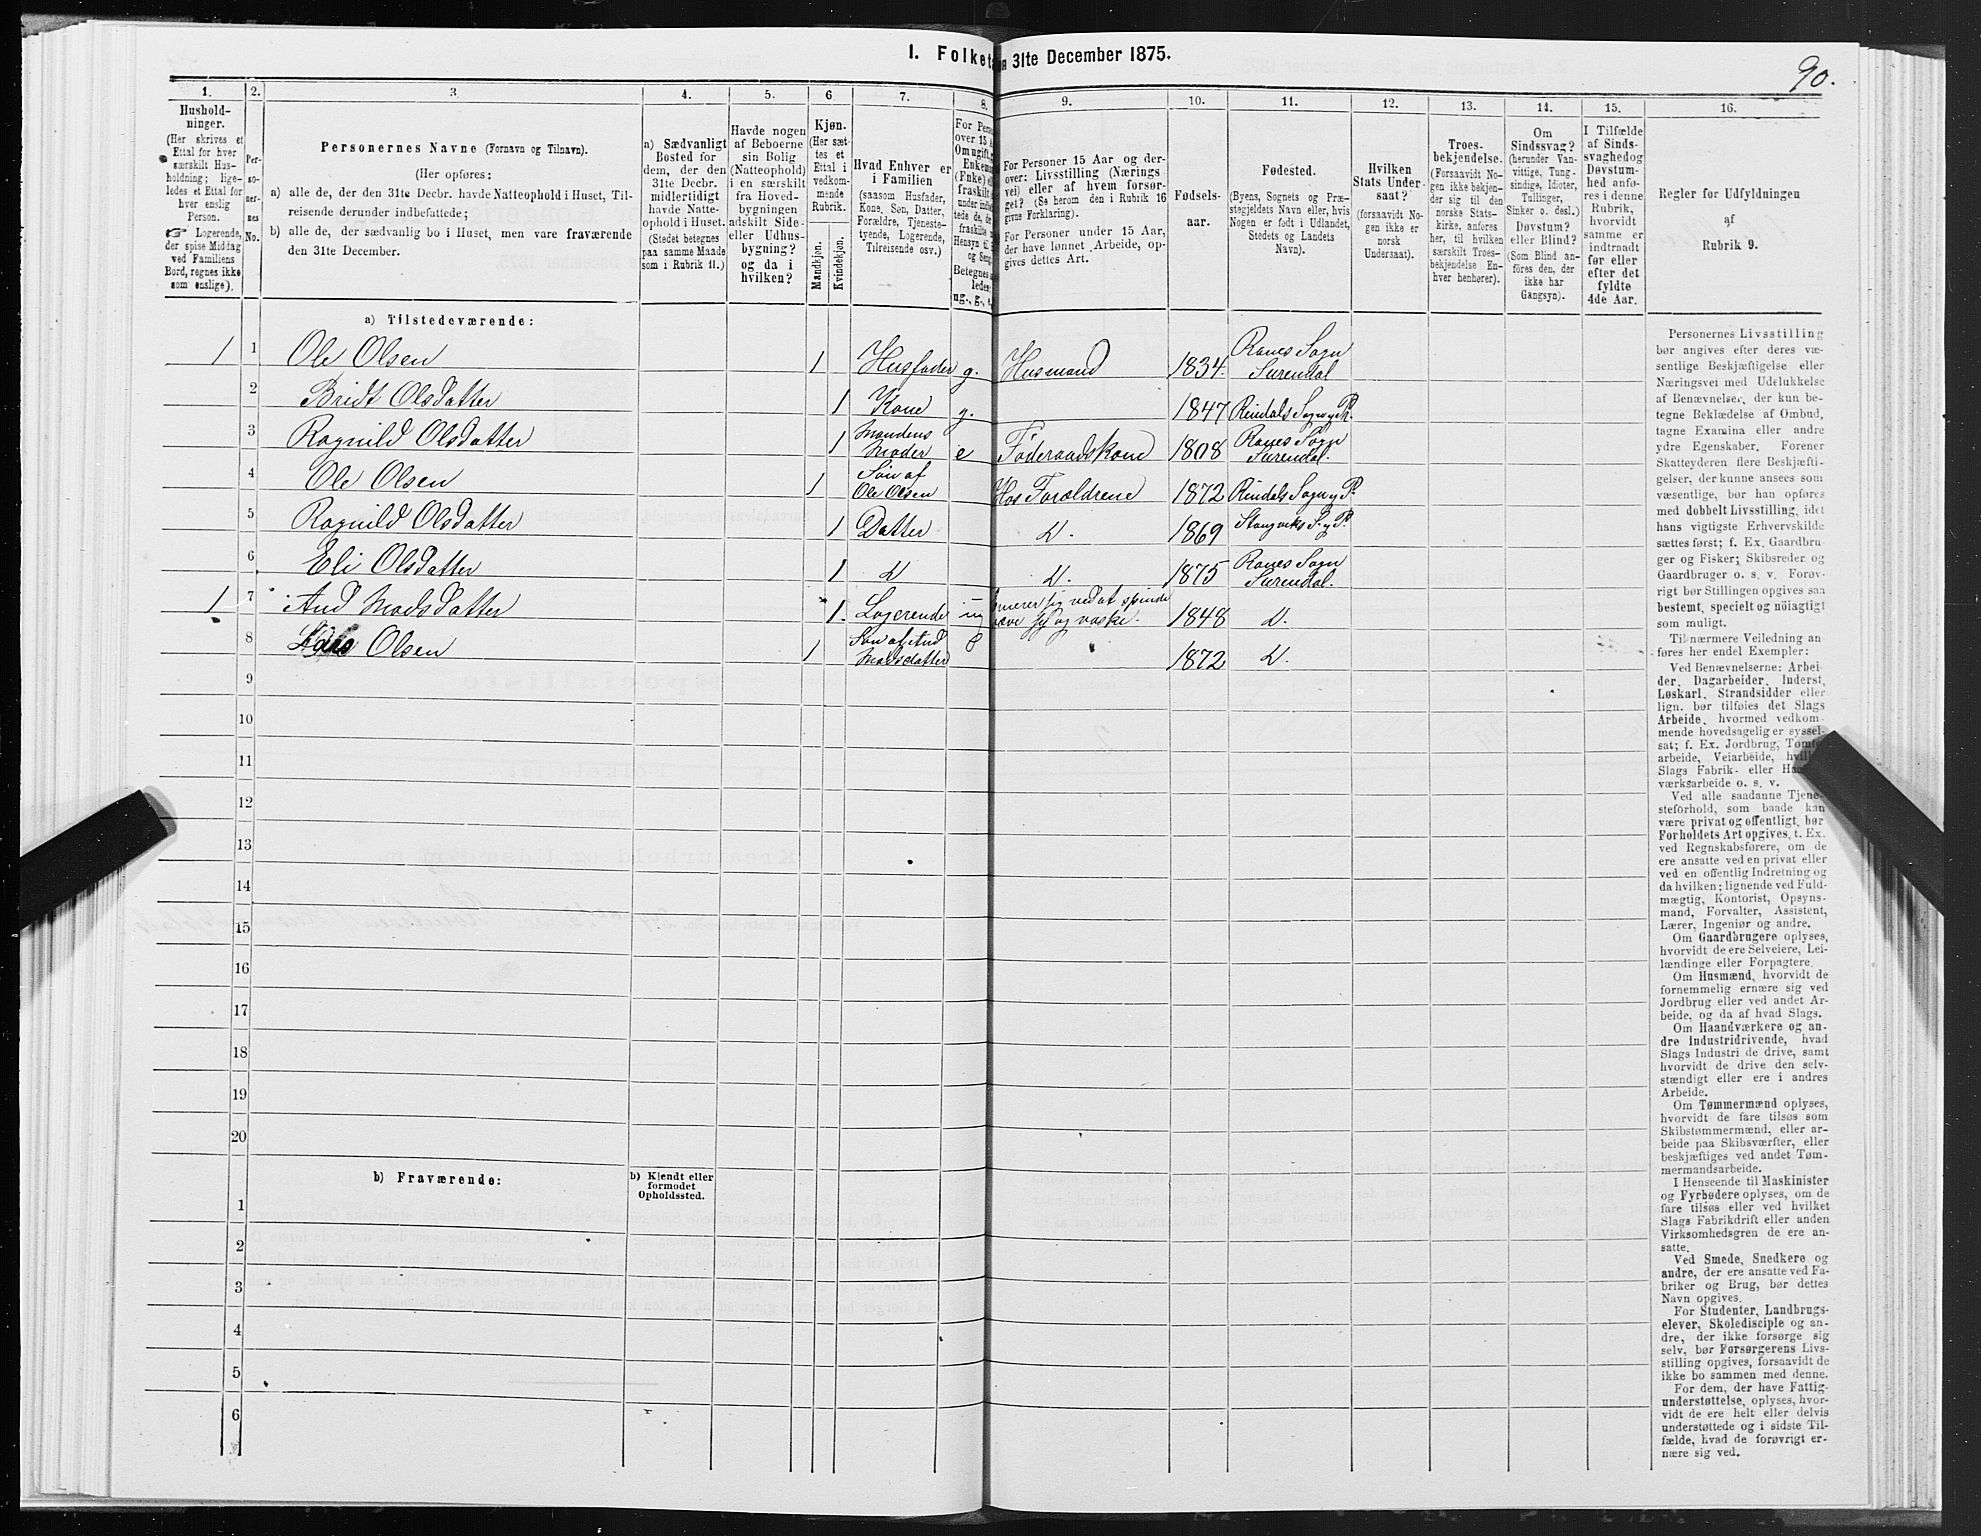 90.
I. Folket
en 31te December 1875.
1.
2.
3.
4.
5.
6
7.
8.
9.
10.
11.
12.
13.
14.
15.
16.
Hushold-
ninger.
(Her skrives et
Ettal for hver
særskilt Hus-
holdning; lige-
ledes et Ettal for
hver enslig
Person.
☞ Logerende,
der spise Middag
ved Familiens
Bord, regnes ikke
som enslige).
Per-
so-
ner-
nes
No.
Personernes Navne (Fornavn og Tilnavn).
(Her opføres:
a) alle de, der den 31te Decbr. havde Natteophold i Huset, Til-
reisende derunder indbefattede;
b) alle de, der sædvanlig bo i Huset, men vare fraværende
den 31te December.
a) Sædvanligt
Bosted for
dem, der den
31te Decbr.
midlertidigt
havde Natte-
ophold i Huset.
(Stedet betegnes
paa samme Maade
som i Rubrik 11.)
Havde nogen
af Beboerne
sin Bolig
(Natteophold)
i en særskilt
fra Hoved-
bygningen
adskilt Side-
eller Udhus-
bygning?
og da i
hvilken?
Kjøn.
(Her sæt-
tes et
Ettal i
vedkom-
mende
Rubrik.
Mandkjøn.
Kvindekjøn.
Hvad Enhver er
i Familien
(saasom Husfader,
Kone, Søn, Datter,
Forældre, Tjeneste-
tyende, Logerende,
Tilreisende osv.)
For Pers
over 15 A
Om ugift, g
Enkem
(Enke) e
fraskilt
under indb
tede de, d
fraskilte
Hensyn til
og Seng
Betegnes
ledes:
ug., g., e.
For Personer 15 Aar og der-
over: Livsstilling (Nærings
vei) eller af hvem forsør-
get? (Se herom den i Rubrik 16
givne Forklaring).
For Personer under 15 Aar,
der have lønnet Arbeide, op-
gives dettes Art.
Fødsels-
aar.
Fødested.
(Byens, Sognets og Præ-
stegjeldets Navn eller, hvis
Nogen er født i Udlandet,
Stedets og Landets
Navn).
Hvilken
Stats Under-
saat?
(forsaavidt No-
gen ikke er
norsk
Undersaat).
Troes-
bekjendelse.
(Forsaavidt No-
gen ikke bekjen-
der sig til den
norske Stats-
kirke, anføres
her, til hvilken
særskilt Troes-
bekjendelse En-
hver henhører).
Om
Sindssvag?
(herunder Van-
vittige, Tung-
sindige, Idioter,
Tullinger,
Sinker o. desl.)
Døvstum?
eller Blind?
(Som Blind an-
føres den, der
ikke har
Gangsyn).
I Tilfælde
af Sinds-
svaghedog
Døvstum-
hed anfø-
res i denne
Rubrik,
hvorvidt
samme er
indtraadt
før eller
efter det
fyldte
4de Aar.
Regler for Udfyldningen
af
Rubrik 9.
a) Tilstedeværende:
1 1 Ole Olsen 1 Husfader g. Husmand 1834. Ranes Sogn Surendal
2 Bridt Olsdatter 1 Kone g. 1847 Rindals Sogn y P.
3 Ragnild Olsdatter 1 Mandens Moder e Føderaadskone 1808 Ranes Sogn Surendal.
4 Ole Olsen 1 Søn af Ole Olsen Hos Forældrene 1872 Rindals Sogn y P.
5 Ragnild Olsdatter 1 Datter d. 1869 Stangviks S. y P.
6 Eli Olsdatter 1 d d. 1875 Ranes Sogn Surendal.
1 7 Aud Madsdatter 1. Logerende ug ernærer sig ved at spinde væve sy og vaske. 1848 d.
8 Olsen 1 Søn af Aud Madsdatter 1872 d.
9
10
11
12
13
14
15
16
17
18
19
20
b) Fraværende:
b) Kjendt eller
formodet
Opholdssted.
1
2
3
4
5
6
Personernes Livsstilling
bør angives efter deres væ-
sentlige Beskjæftigelse eller
Næringsvei med Udelukkelse
af Benævnelser, der kun be-
tegne Beklædelse af Ombud,
tagne Examina eller andre
ydre Egenskaber. Forener
Skatteyderen flere Beskjæfti-
gelser, der kunne ansees som
væsentlige, bør han opføres
med dobbelt Livsstilling, idet
hans vigtigste Erhvervskilde
sættes først; f. Ex. Gaardbru-
ger og Fisker; Skibsreder og
Gaardbruger o. s. v. Forøv-
rigt bør Stillingen opgives saa
bestemt, specielt og nöiagtigt
som muligt.
Til nærmere Veiledning an-
føres her endel Exempler:
Ved Benævnelserne: Arbei-
der, Dagarbeider, Inderst,
Løskarl, Strandsidder eller
lign. bør tilføies det Slags
Arbeide, hvormed vedkom-
mende hovedsagelig er syssel-
sat; f. Ex. Jordbrug, Tømte-
arbeide, Veiarbeide, hvil
Slags Fabrik- eller Ha
værksarbeide o. s. v.
Ved alle saadanne Tjene-
steforhold, som baade kan
være privat og offentligt, bør
Forholdets Art opgives, t. Ex.
ved Regnskabsførere, om de
ere ansatte ved en privat eller
ved en offentlig Indretning og
da hvilken; lignende ved Fuld-
mægtig, Kontorist, Opsyns-
mand, Forvalter, Assistent,
Lærer, Ingeniør og andre.
Om Gaardbrugere oplyses,
hvorvidt de ere Selveiere, Lei-
lændinge eller Forpagtere.
Om Husmænd, hvorvidt de
fornemmelig ernære sig ved
Jordbrug eller ved andet Ar-
beide, og da af hvad Slags.
Om Haandværkere og an-
dre Industridrivende, hvad
Slags Industri de drive, samt
hvorvidt de drive den selv-
stændigt eller ere i andres
Arbeide.
Om Tømmermænd oplyses,
hvorvidt de fare tilsøs som
Skibstømmermænd, eller ar-
beide paa Skibsværfter, eller
beskjæftiges ved andet Tøm-
mermandsarbeide.
I Henseende til Maskinister
og Fyrbødere oplyses, om de
fare tilsøs eller ved hvilket
Slags Fabrikdrift eller anden
Virksomhedsgren de ere an-
satte.
Ved Smede, Snedkere og
andre, der ere ansatte ved Fa-
briker og Brug, bør dettes
Navn opgives.
For Studenter, Landbrugs-
elever, Skoledisciple og an-
dre, der ikke forsørge sig
selv, bør Forsørgerens Livs-
stilling opgives, forsaavidt de
ikke bo sammen med denne.
For dem, der have Fattig-
understøttelse, oplyses, hvor-
vidt de ere helt eller delvis
understøttede og i sidste Til-
fælde, hvad de forøvrigt er-
nære sig ved.